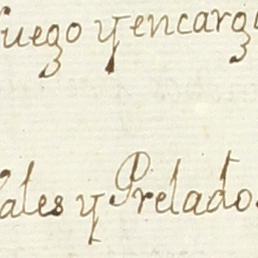 ruego y encarg
ales y Prelado